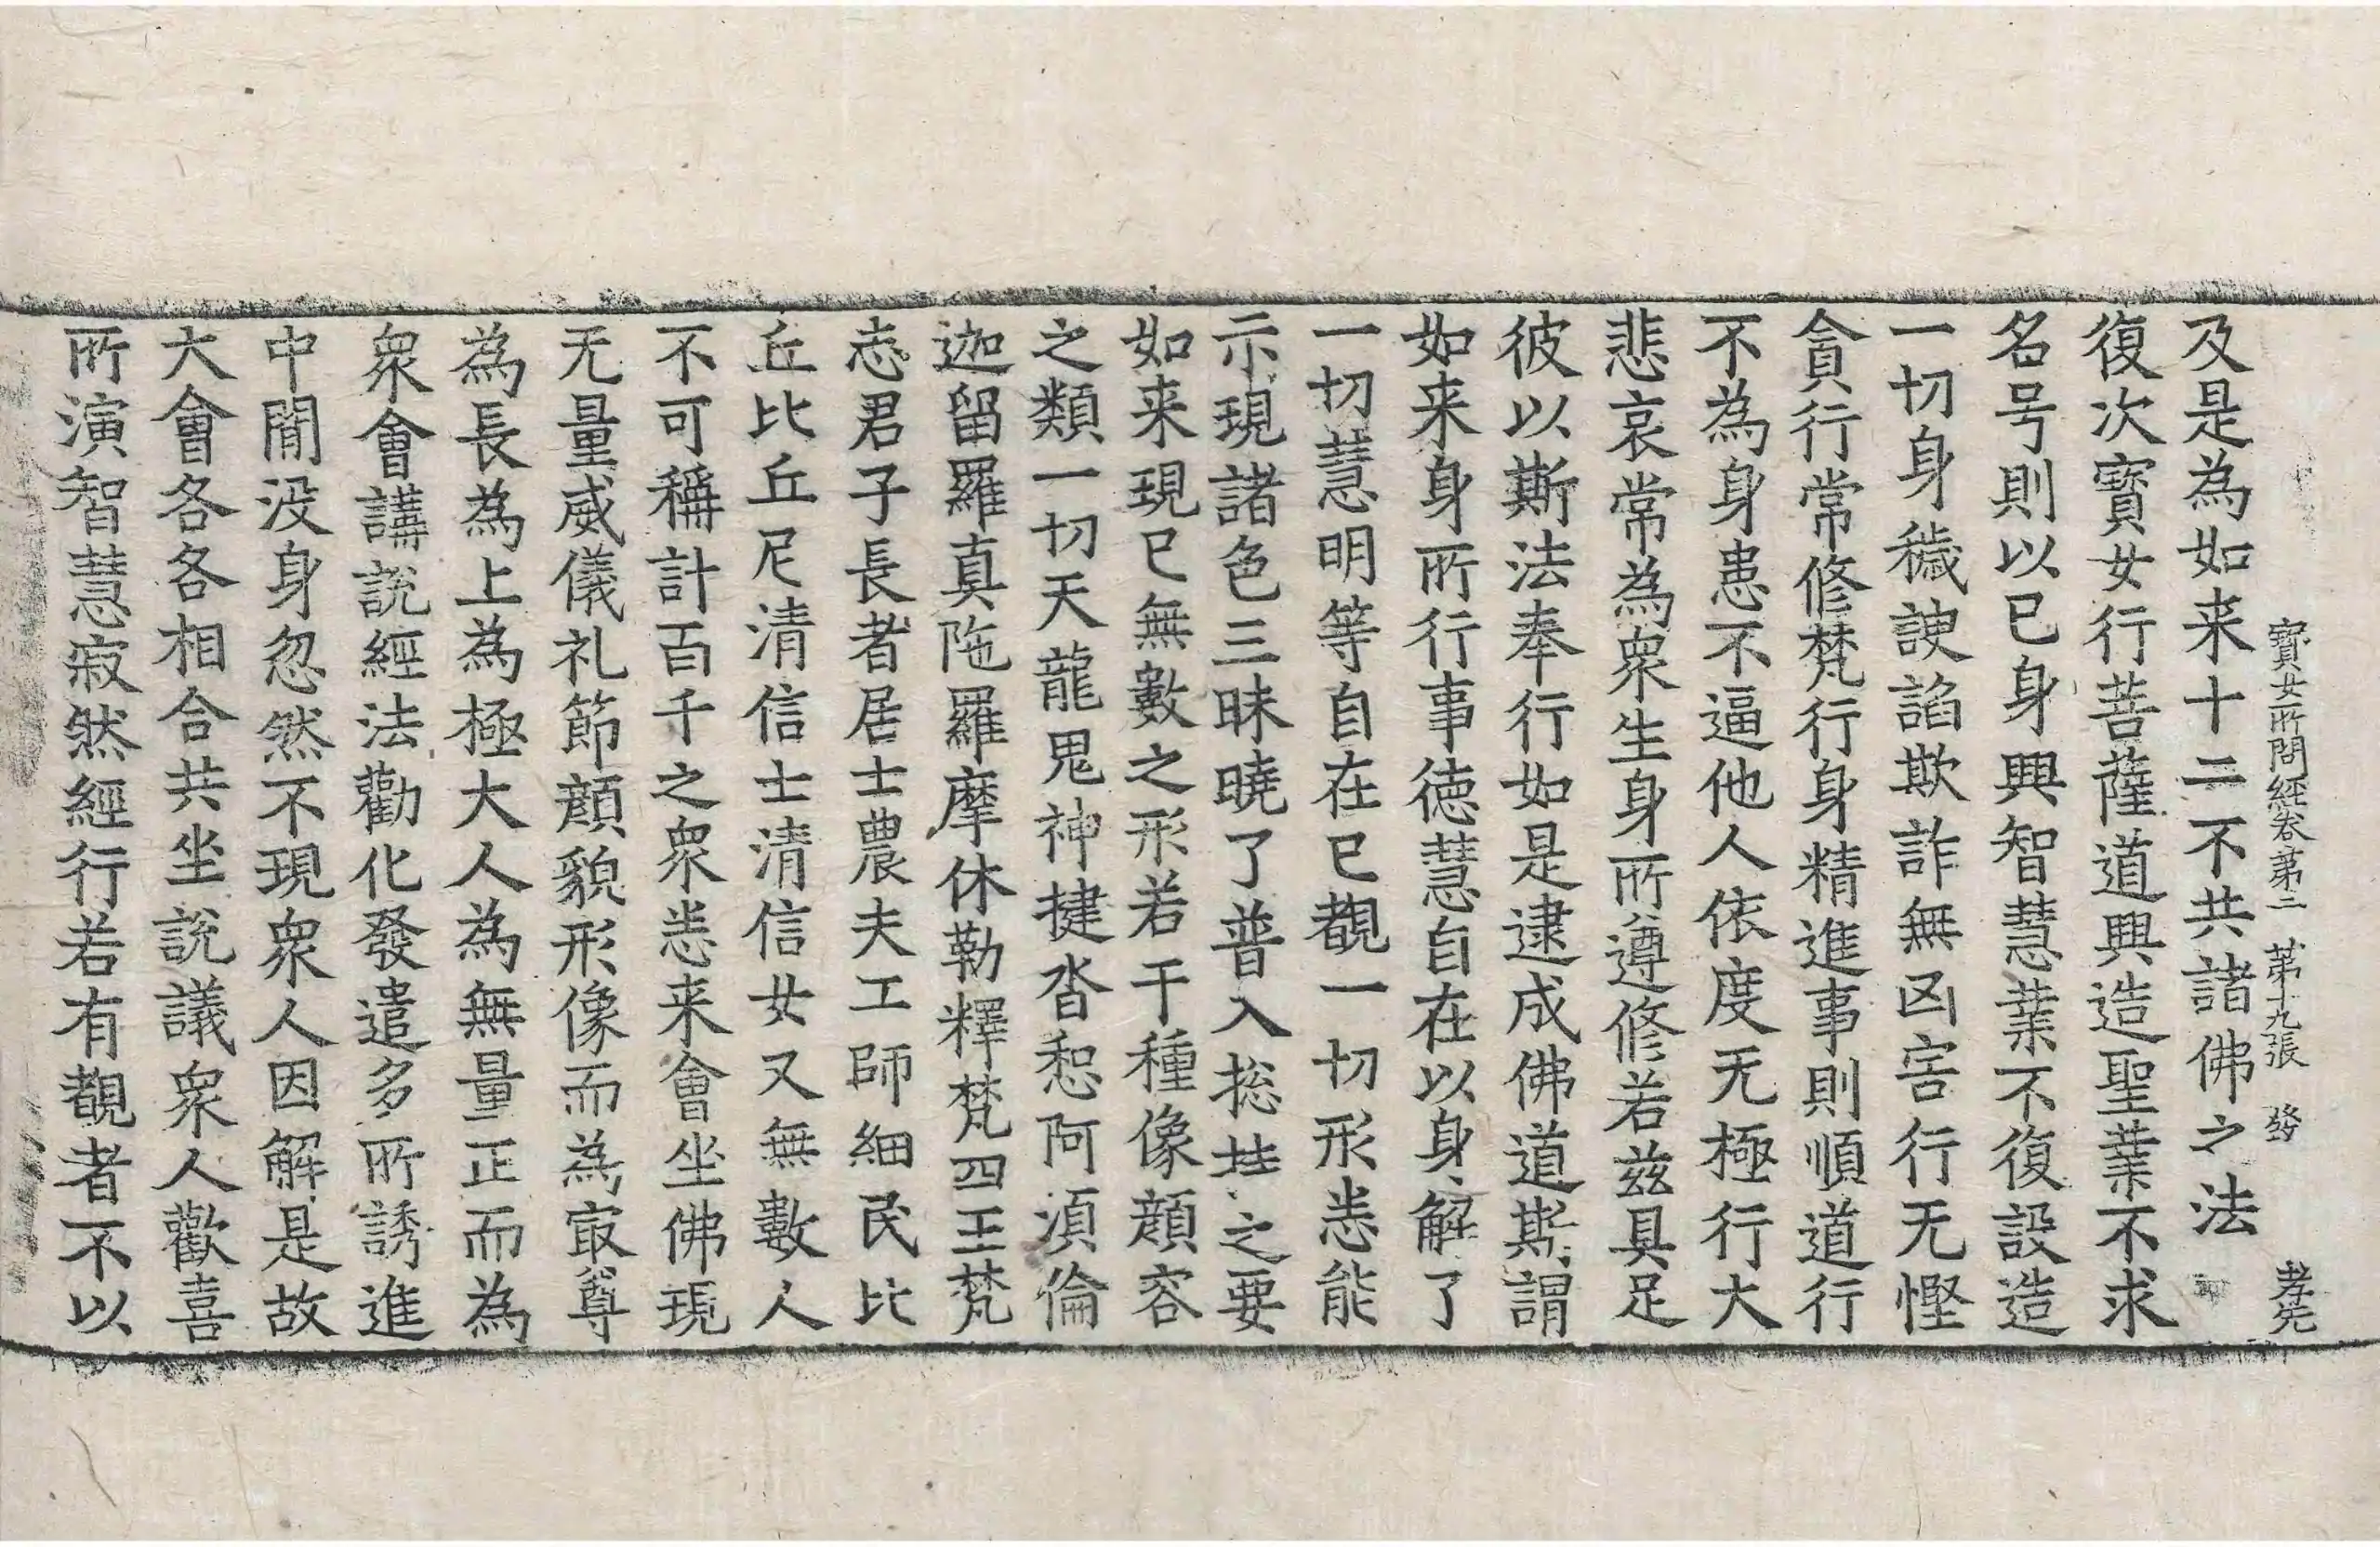 寶女所問經卷第二 第十九張 發 孝先
及是為如来十二不共諸佛之法
復次寶女行菩薩道興造聖業不求
名号則以己身興智慧業不復設造
一切身穢諛諂欺詐無凶害行无慳
貪行常修梵行身精進事則順道行
不為身患不逼他人依度无極行大
悲哀常為衆生身所遵修若兹具足
彼以斯法奉行如是逮成佛道斯謂
如来身所行事徳慧自在以身解了
一切慧明等自在已覩一切形悉能
示現諸色三昧曉了普入捴持之要
如来現已無數之形若干種像顔容
之類一切天龍鬼神揵沓惒阿湏倫
迦留羅真陁羅摩休勒釋梵四王梵
志君子長者居士農夫工師細民比
丘比丘尼清信士清信女又無數人
不可稱計百千之衆悉来會坐佛現
无量威儀礼節顔貌形像而為冣尊
為長為上為極大人為無量正而為
衆會講說經法勸化發遣多所誘進
中閒没身忽然不現衆人因解是故
大會各各相合共坐說議衆人歡喜
所演智慧寂然經行若有覩者不以